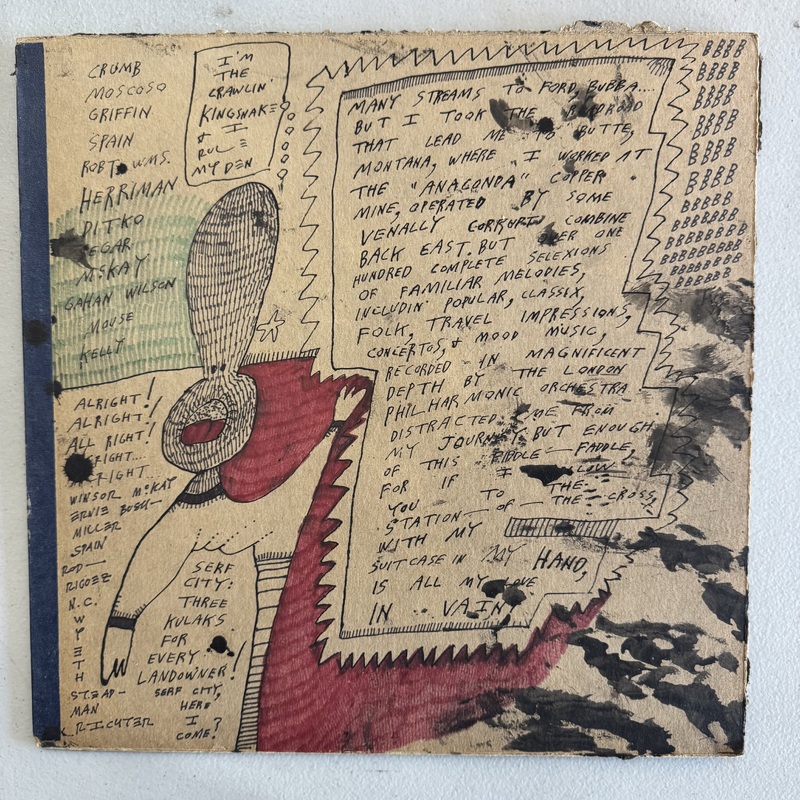 CRUMB
MOSCOSO
GRIFFIN
SPAIN
ROBT. WMS.
HERRIMAN
DITKO
SEGAR
McKAY
GAHAN WILSON
MOUSE
KELLY
I'M
THE
CRAWLIN'
KINGSNAKE
& I
RULE
MY DEN
ALRIGHT!
ALRIGHT!
ALL RIGHT!
WINSOR McKAY
ERNIE BUSH
MILLER
SPAIN
ROD
RIGGEZ
N.C.
W
Y
E
T
H
STEAD-
MAN
RICHTER
SERF
CITY:
THREE
KULAKS
FOR
EVERY
LANDOWNER!
SERF CITY,
HERE
I
COME?
MANY STREAMS TO FORD, BUBBA....
BUT I TOOK THE
THAT LEAD ME TO BUTTE,
MONTANA, WHERE I WORKED AT
THE "ANACONDA" COPPER
MINE, OPERATED BY SOME
VENALLY CORRUPT COMBINE
BACK EAST. BUT OVER ONE
HUNDRED COMPLETE SELEXIONS
OF FAMILIAR MELODIES,
INCLUDIN' POPULAR, CLASSIX,
FOLK, TRAVEL IMPRESSIONS,
CONCERTOS, & MOOD MUSIC,
RECORDED IN MAGNIFICENT
DEPTH BY THE LONDON
PHILHARMONIC ORCHESTRA
DISTRACTED ME FROM
MY JOURNEY. BUT ENOUGH
OF THIS FIDDLE-FADDLE,
FOR IF I
YOU TO THE
STATION-OF-THE-CROSS,
WITH MY
SUITCASE IN MY HAND,
IS ALL MY LOVE
IN VAIN?
BBBB
BBBB
BBBB
BBBB
BBBB
BBBB
BBBB